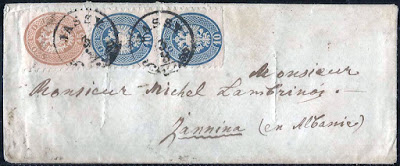 JASSY
JASSY
Monsieur
Monsieur Michel Lambrinos
Jannina (en Albanie)